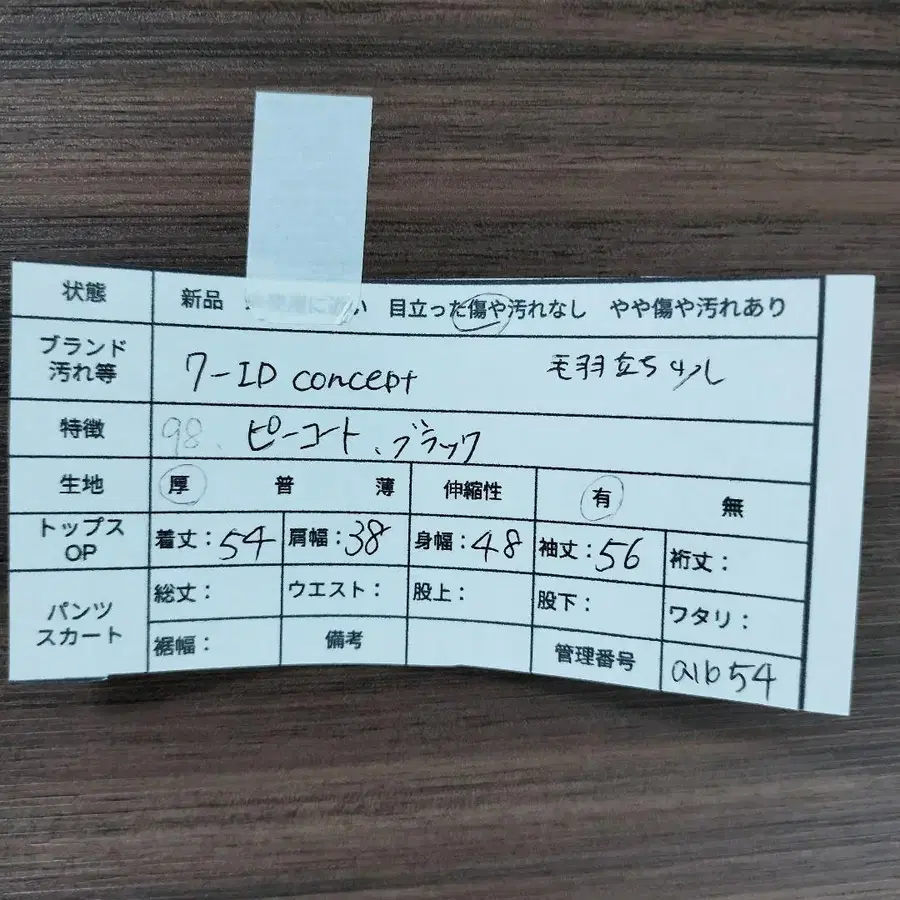 状態 新品 い 目立った傷や汚れなし やや傷や汚れあり
ブランド 汚れ等 7-ID concept 毛羽立ち少し
特徴 98. ピーコート、ブラック
生地 厚 普 薄 伸縮性 有 無
トップス OP 着丈:54 肩幅:38 身幅:48 袖丈:56 裄丈:
パンツ スカート 総丈: ウエスト: 股上: 股下: ワタリ:
裾幅: 備考 管理番号 a1b54